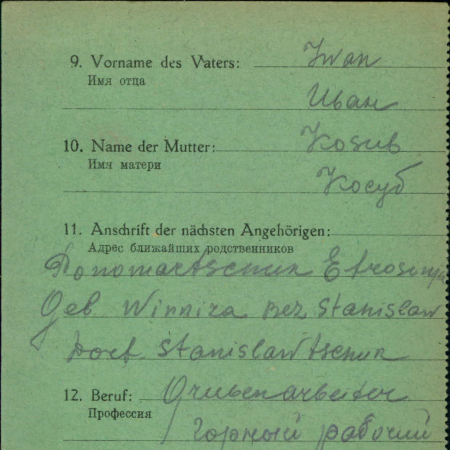 9. Vorname des Vaters: Iwan
Имя отца
Иван
10. Name der Mutter: Kosub
Имя матери
Косуб
11. Anschrift der nächsten Angehörigen:
Адрес ближайших родственников
Geb Winniza Bez Stanislaw
Dorf Stanislawtschuk
12. Beruf: Grubenarbeiter
Профессия
горный рабочий